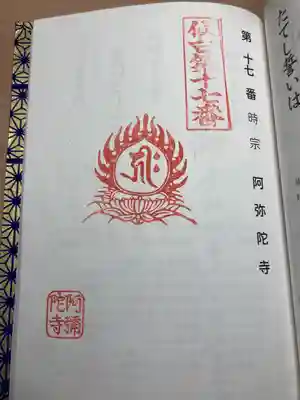 たてし誓いは
第十七番 時宗 阿弥陀寺
十七番
ह्रीः
阿彌陀寺